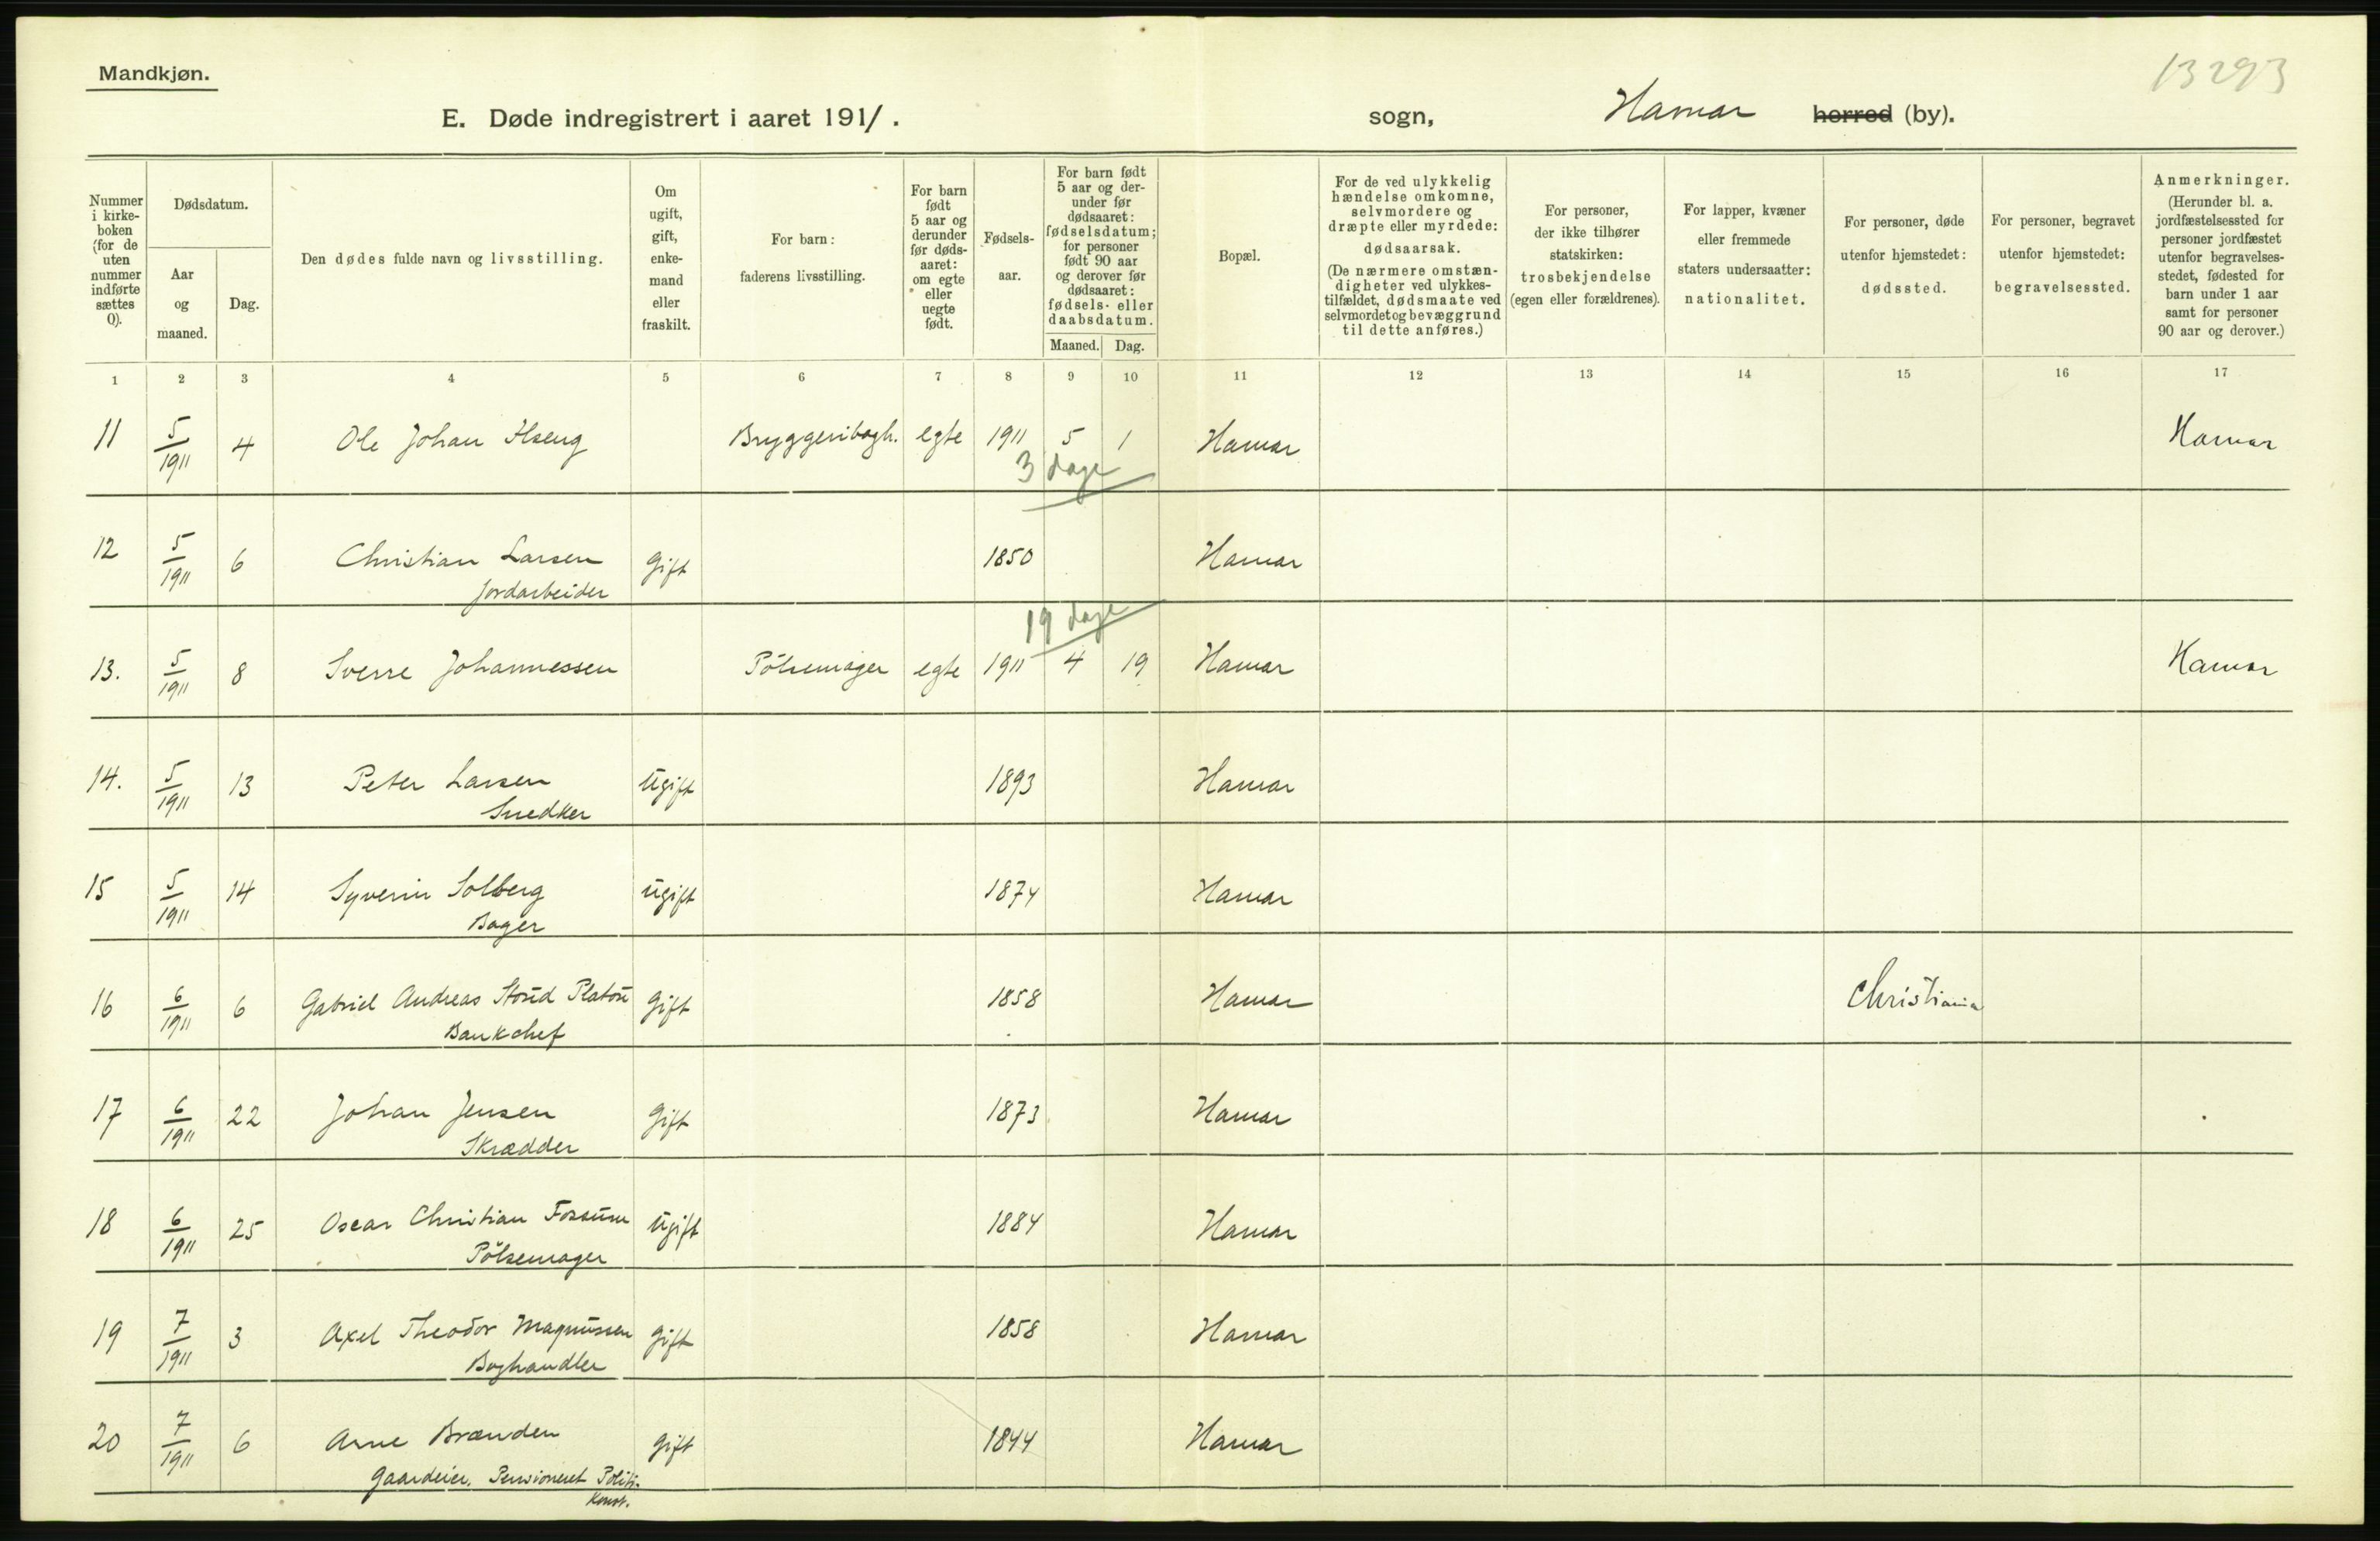 Mandkjøn.
13293
E. Døde indregistrert i aaret 1911.
sogn, Hamar herred (by).
Nummer i kirke-boken (for de uten nummer indførte sættes 0).
Dødsdatum.
Aar og maaned.
Dag.
Den dødes fulde navn og livsstilling.
Om ugift, gift, enke-mand eller fraskilt.
For barn: faderens livsstilling.
For barn født 5 aar og derunder før døds-aaret: om egte eller uegte født.
Fødsels-aar.
For barn født 5 aar og der-under før dødsaaret: fødselsdatum; for personer født 90 aar og derover før dødsaaret: fødsels- eller daabsdatum.
Maaned. Dag.
Bopæl.
For de ved ulykkelig hændelse omkomne, selvmordere og dræpte eller myrdede: dødsaarsak. (De nærmere omstæn-digheter ved ulykkes-tilfældet, dødsmaate ved selvmordet og bevæggrund til dette anføres.)
For personer, der ikke tilhører statskirken: trosbekjendelse (egen eller forældrenes).
For lapper, kvæner eller fremmede staters undersaatter: nationalitet.
For personer, døde utenfor hjemstedet: dødssted.
For personer, begravet utenfor hjemstedet: begravelsessted.
Anmerkninger. (Herunder bl. a. jordfæstelsessted for personer jordfæstet utenfor begravelses-stedet, fødested for barn under 1 aar samt for personer 90 aar og derover.)
1 2 3 4 5 6 7 8 9 10 11 12 13 14 15 16 17
11 5/1911 4 Ole Johan Ilseng Bryggeribogh. egte 1911 5 1 Hamar Hamar
3 dage
12 5/1911 6 Christian Larsen Gift 1850 Hamar
Jordarbeider
19 dage
13. 5/1911 8 Sverre Johannessen Pölsemager egte 1911 4 19 Hamar Hamar
14. 5/1911 13 Peter Larsen Ugift 1893 Hamar
Snedker
15 5/1911 14 Syverin Solberg Ugift 1874 Hamar
Bager
16 6/1911 6 Gabriel Andreas Stoud Platou Gift 1858 Hamar Christiania
Bankchef
17 6/1911 22 Johan Jensen Gift 1873 Hamar
Skrædder
18 6/1911 25 Oscar Christian Fossum Ugift 1884 Hamar
Pölsemager
19 7/1911 3 Axel Theodor Magnussen Gift 1858 Hamar
Boghandler
20 7/1911 6 Arne Brænden Gift 1844 Hamar
Gaardeier. Pensioneret Politi-
konst.